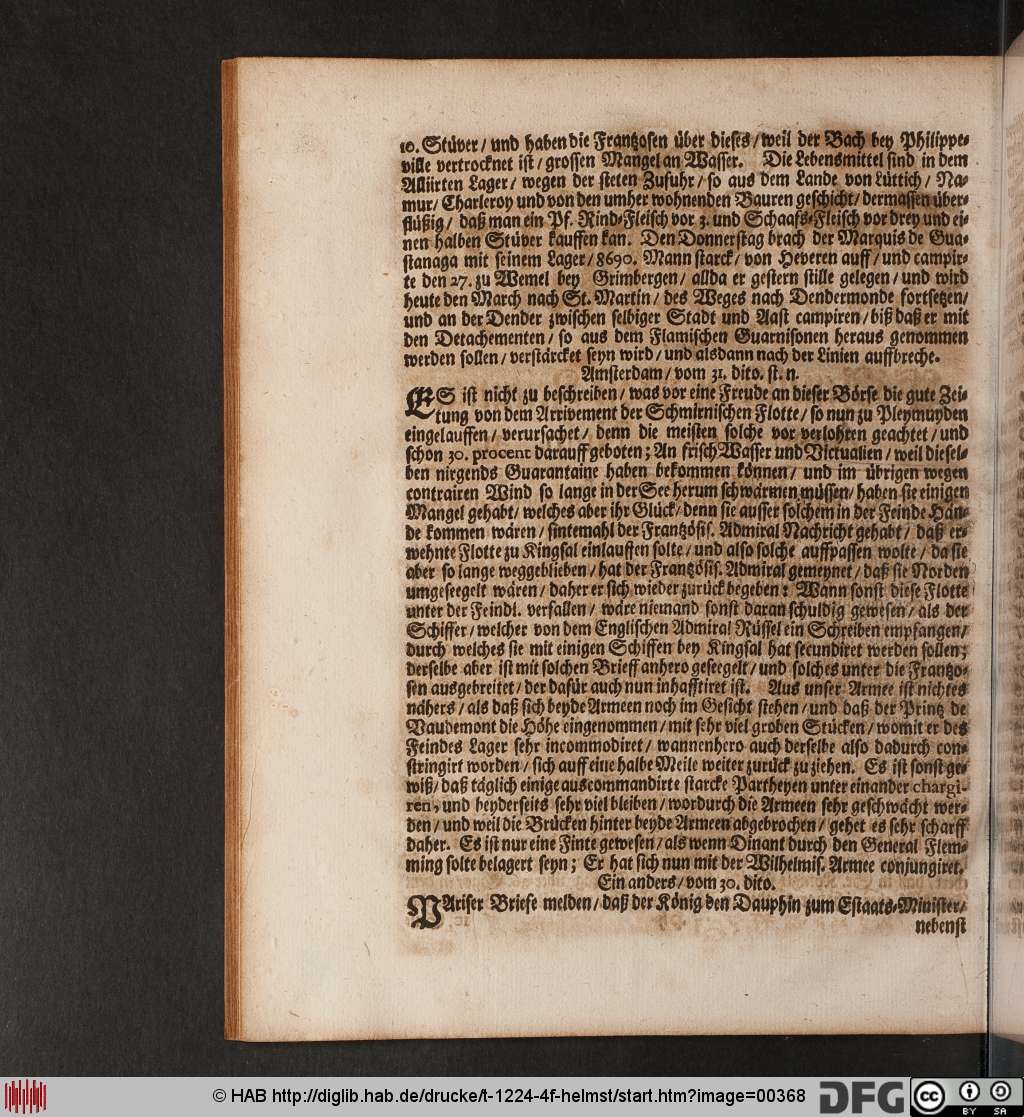 10. Stüver / und haben die Frantzosen über dieses / weil der Bach bey Philippe-
ville vertrocknet ist / grossen Mangel an Wasser. Die Lebensmittel sind in dem
Alliirten Lager / wegen der steten Zufuhr / so aus dem Lande von Lüttich / Na-
mur / Charleroy und von den umher wohnenden Bauren geschicht / dermassen über-
flüßig / daß man ein Pf. Rind-Fleisch vor 3. und Schaafs-Fleisch vor drey und ei-
nen halben Stüver kauffen kan. Den Donnerstag brach der Marquis de Gua-
stanaga mit seinem Lager / 8690. Mann starck / von Heveren auff / und campir-
te den 27. zu Wemel bey Grimbergen / allda er gestern stille gelegen / und wird
heute den March nach St. Martin / des Weges nach Dendermonde fortsetzen /
und an der Dender zwischen selbiger Stadt und Aast campiren / biß daß er mit
den Detachementen / so aus dem Flamischen Guarnisonen heraus genommen
werden sollen / verstärcket seyn wird / und alsdann nach der Linien auffbreche.
Amsterdam / vom 31. dito. st. n.
ES ist nicht zu beschreiben / was vor eine Freude an dieser Börse die gute Zei-
tung von dem Arrivement der Schmirnischen Flotte / so nun zu Pleymuyden
eingelauffen / verursachet / denn die meisten solche vor verlohren geachtet / und
schon 30. procent darauff geboten; An frisch Wasser und Victualien / weil diesel-
ben nirgends Guarantaine haben bekommen können / und im übrigen wegen
contrairen Wind so lange in der See herum schwärmen müssen / haben sie einigen
Mangel gehabt / welches aber ihr Glück / denn sie ausser solchem in der Feinde Hän-
de kommen wären / sintemahl der Frantzösis. Admiral Nachricht gehabt / daß er-
wehnte Flotte zu Kingsal einlauffen solte / und also solche auffpassen wolte / da sie
aber so lange weggeblieben / hat der Frantzösis. Admiral gemeynet / daß sie Norden
umgeseegelt wären / daher er sich wieder zurück begeben: Wann sonst diese Flotte
unter der Feindl. verfallen / wäre niemand sonst daran schuldig gewesen / als der
Schiffer / welcher von dem Englischen Admiral Rüssel ein Schreiben empfangen /
durch welches sie mit einigen Schiffen bey Kingsal hat secundiret werden sollen;
derselbe aber ist mit solchen Brieff anhero geseegelt / und solches unter die Frantzo-
sen ausgebreitet / der dafür auch nun inhafftiret ist. Aus unser Armee ist nichtes
nähers / als daß sich beyde Armeen noch im Gesicht stehen / und daß der Printz de
Vaudemont die Höhe eingenommen / mit sehr viel groben Stücken / womit er des
Feindes Lager sehr incommodiret / wannenhero auch derselbe also dadurch con-
stringirt worden / sich auff eine halbe Meile weiter zurück zu ziehen. Es ist sonst ge-
wiß / daß täglich einige auscommandirte starcke Partheyen unter einander chargi-
ren, und beyderseits sehr viel bleiben / wordurch die Armeen sehr geschwächt wer-
den / und weil die Brücken hinter beyde Armeen abgebrochen / gehet es sehr scharff
daher. Es ist nur eine Finte gewesen / als wenn Dinant durch den General Flem-
ming solte belagert seyn; Er hat sich nun mit der Wilhelmis. Armee conjungiret.
Ein anders / vom 30. dito.
PAriser Briefe melden / daß der König den Dauphin zum Estaats-Minister /
nebenst
© HAB http://diglib.hab.de/drucke/t-1224-4f-helmst/start.htm?image=00368
DFG
cc BY SA